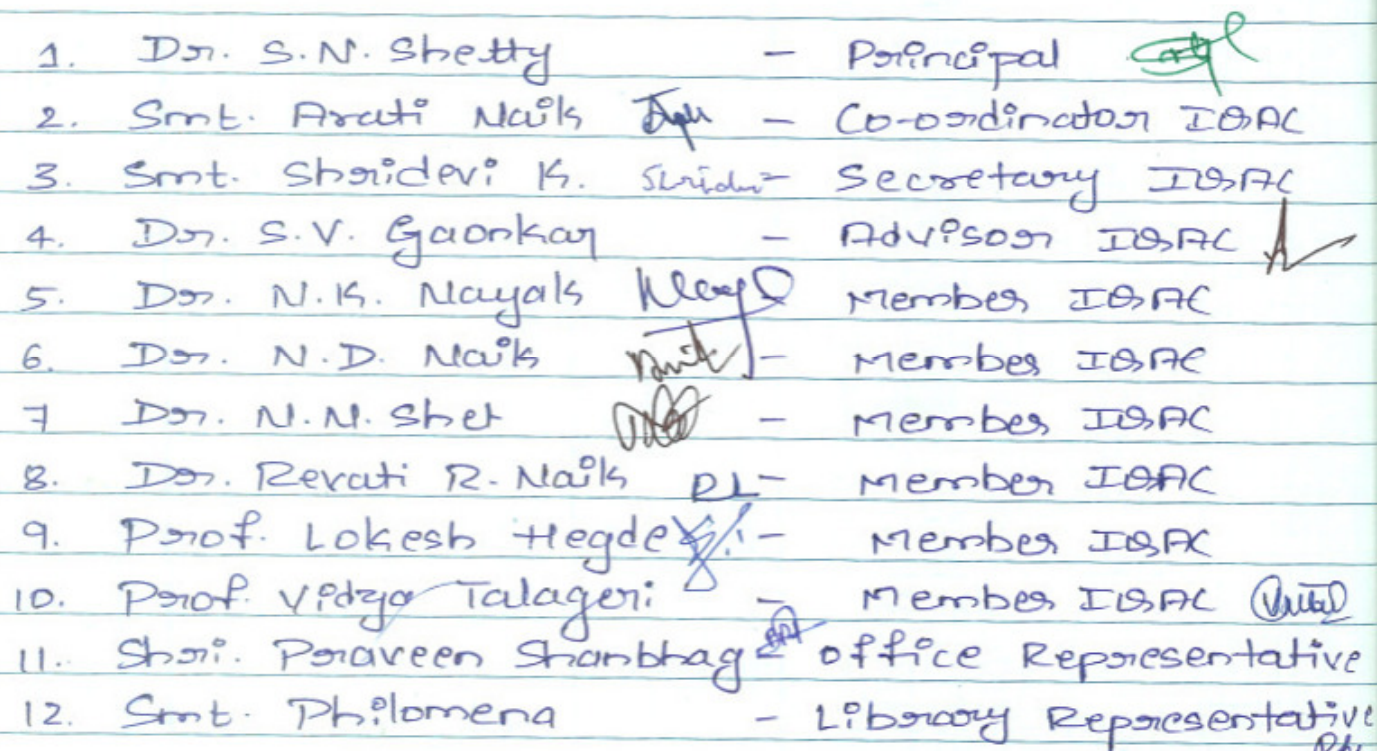 1. Dr. S.N. Shetty - Principal
2. Smt. Arati Naik - Co-ordinator IQAC
3. Smt. Shridevi K. - Secretary IQAC
4. Dr. S.V. Gaonkar - Advisor IQAC
5. Dr. N.K. Nayak Member IQAC
6. Dr. N.D. Naik - Member IQAC
7 Dr. N.N. Shet - Member IQAC
8. Dr. Revati R. Naik - Member IQAC
9. Prof. Lokesh Hegde - Member IQAC
10. Prof. Vidya Talageri - Member IQAC
11. Shri. Praveen Shanbhag - office Representative
12. Smt. Philomena - Library Representative